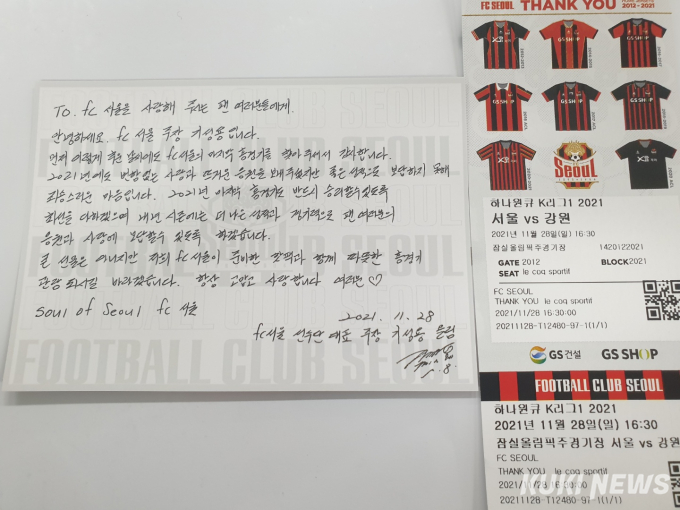 To. fc 서울을 사랑해 주시는 팬 여러분들에게.
안녕하세요. fc 서울 주장 기성용입니다.
먼저 이렇게 추운 날씨에도 fc서울의 마지막 홈경기를 찾아주셔서 감사합니다.
2021년에도 변함없는 사랑과 뜨거운 응원을 보내주셨지만 좋은 성적으로 보답하지 못해
죄송스러운 마음입니다. 2021년 마지막 홈경기도 반드시 승리할수있도록
최선을 다하겠으며 내년 시즌에는 더 나은 성적과 경기력으로 팬 여러분의
응원과 사랑에 보답할수 있도록 하겠습니다.
큰 선물은 아니지만 저희 fc서울이 준비한 핫팩과 함께 따뜻한 홈경기
관람 되시길 바라겠습니다. 항상 고맙고 사랑합니다 여러분♡
Soul of Seoul fc 서울
2021. 11. 28
fc서울 선수단 대표 주장 기성용 올림
FOOTBALL CLUB SEOUL
FC SEOUL THANK YOU 2012-2021
XI
GS SHOP
SEOUL
하나원큐 K리그1 2021
서울 vs 강원
2021년 11월 28일(일) 16:30
잠실올림픽주경기장 1420122021
GATE 2012 BLOCK 2021
SEAT le coq sportif
FC SEOUL
THANK YOU le coq sportif
2021/11/28 16:30:00
20211128-T12480-97-1(1/1)
GS건설 GS SHOP
FOOTBALL CLUB SEOUL
하나원큐 K리그1 2021
2021년 11월 28일(일) 16:30
잠실올림픽주경기장 서울 vs 강원
FC SEOUL
THANK YOU le coq sportif
2021/11/28 16:30:00
20211128-T12480-97-1(1/1)
KUKI NEWS